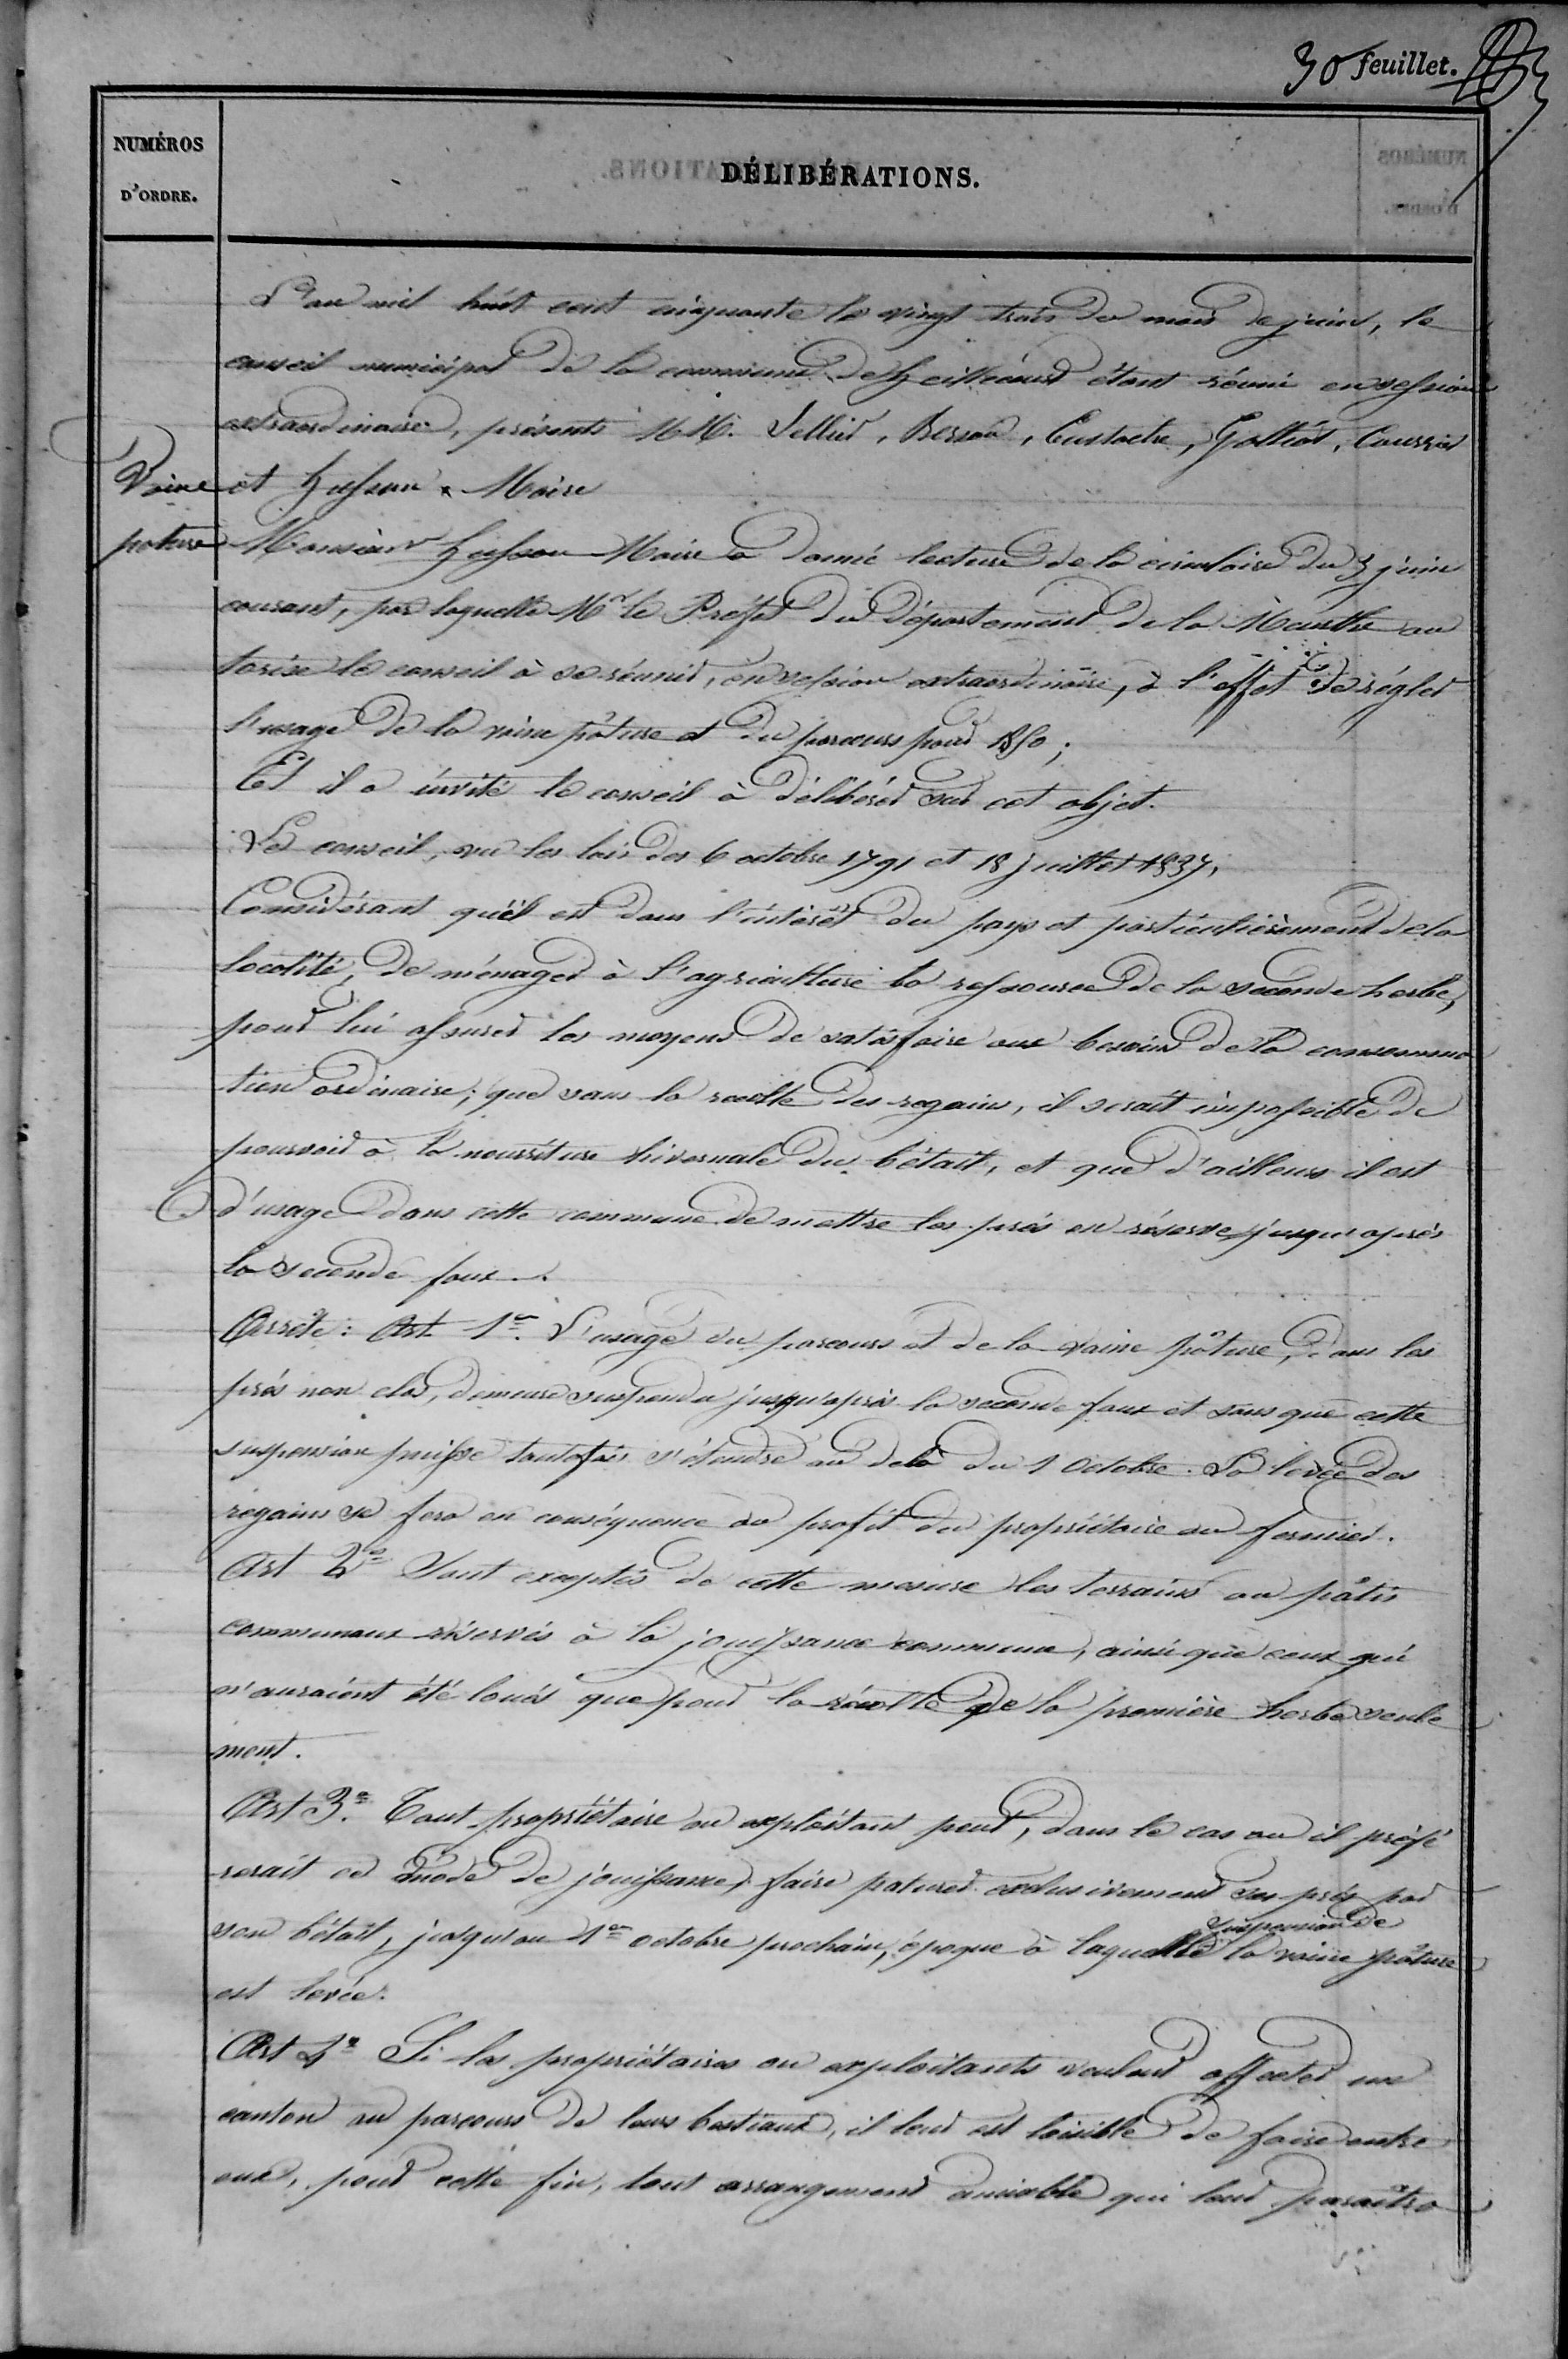 30 feuillet.
NUMÉROS
D'ORDRE.
DÉLIBÉRATIONS.
L'an mil huit cent cinquante le vingt trois du mois de juin, le
conseil municipal de la commune de heillecourt étant réuni en session
extraordinaire, présents MM. Besson, Eustache, Galliot,
Vaine
pature
et husson Maire
Monsieur husson Maire a donné lecture de la circulaire du 3 juin
courant, par laquelle Mr le Préfet du Département de la Meurthe au
torise le conseil à se réunir, en session extraordinaire, à l'effet de régler
l'usage de la vaine pâture et du parcours pour 1850;
Et il a invité le conseil à délibérer sur cet objet.
Le conseil, vu les lois des 6 octobre 1791 et 18 juillet 1837,
Considérant qu'il est dans l'intérêt du pays et particulièrement de la
localité, de ménager à l'agriculture la ressource de la seconde herbe,
pour lui assurer les moyens de satisfaire aux besoins de la consomma
tion ordinaire; que sans la récolte des regains, il serait impossible de
pourvoir à la nourriture hivernale du bétail, et que d'ailleurs il est
d'usage dans cette commune de mettre les prés en réserve jusqu'après
la seconde faux.
Arrête: Art 1er. L'usage du parcours et de la vaine pâture, dans les
prés non clos, demeure suspendu jusqu'après la seconde faux et sans que cette
suspension puisse toutefois s'étendre au delà du 1 Octobre. La levée des
regains se fera en conséquence au profit du propriétaire ou fermier.
Art 2e Sont exceptés de cette mesure les terrains ou pâtis
communaux réservés à la jouissance commune, ainsi que ceux qui
n'auraient été loués que pour la récolte de la première herbe seule
ment.
Art 3e. Tout propriétaire ou exploitant peut, dans le cas ou il préfé
rerait ce mode de jouissance, faire paturer exclusivement ses prés par
suspension de
son bétail, jusqu'au 1er octobre prochain, époque à laquelle la vaine pâture
est levée.
Art 4e Si les propriétaires ou exploitants veulent affecter un
canton au parcours de leurs bestiaux, il leur est loisible de faire entre
eux, pour cette fin, tout arrangement amiable qui leur paraîtra